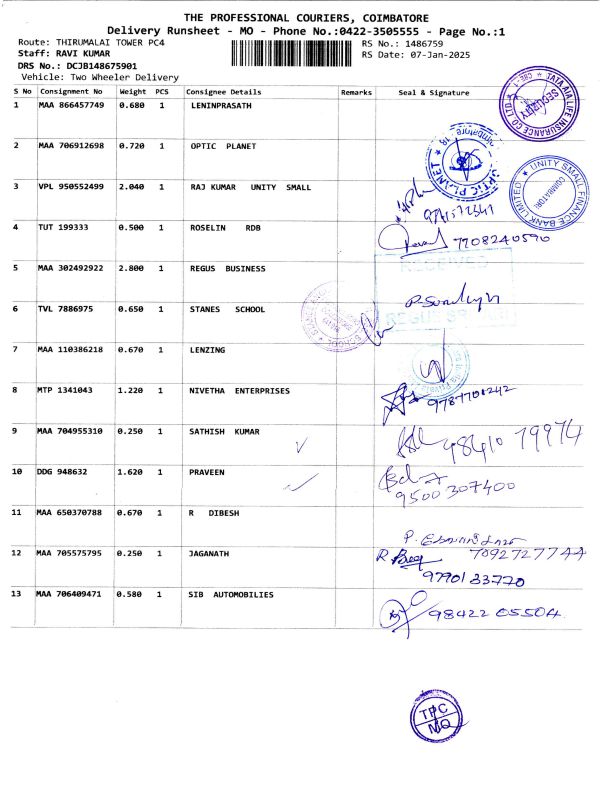 THE PROFESSIONAL COURIERS, COIMBATORE
Delivery Runsheet - MO - Phone No.:0422-3505555 - Page No.:1
Route: THIRUMALAI TOWER PC4 RS No.: 1486759
Staff: RAVI KUMAR RS Date: 07-Jan-2025
DRS No.: DCJB148675901
Vehicle: Two Wheeler Delivery
S No Consignment No Weight PCS Consignee Details Remarks Seal & Signature
1 MAA 866457749 0.680 1 LENINPRASATH
TATA AIA LIFE INSURANCE CO LTD
SECURITY
2 MAA 706912698 0.720 1 OPTIC PLANET
OPTIC PLANET
3 VPL 950552499 2.040 1 RAJ KUMAR UNITY SMALL
UNITY SMALL FINANCE BANK LIMITED
COIMBATORE
4 TUT 199333 0.500 1 ROSELIN RDB
7708240590
5 MAA 302492922 2.800 1 REGUS BUSINESS
RECEIVED
REGUS
6 TVL 7886975 0.650 1 STANES SCHOOL
7 MAA 110386218 0.670 1 LENZING
8 MTP 1341043 1.220 1 NIVETHA ENTERPRISES
9787701242
9 MAA 704955310 0.250 1 SATHISH KUMAR
98410 79974
10 DDG 948632 1.620 1 PRAVEEN
9500307400
11 MAA 650370788 0.670 1 R DIBESH
7092727744
12 MAA 705575795 0.250 1 JAGANATH
9790133770
13 MAA 706409471 0.580 1 SIB AUTOMOBILIES
98422 05504
TPC
MO